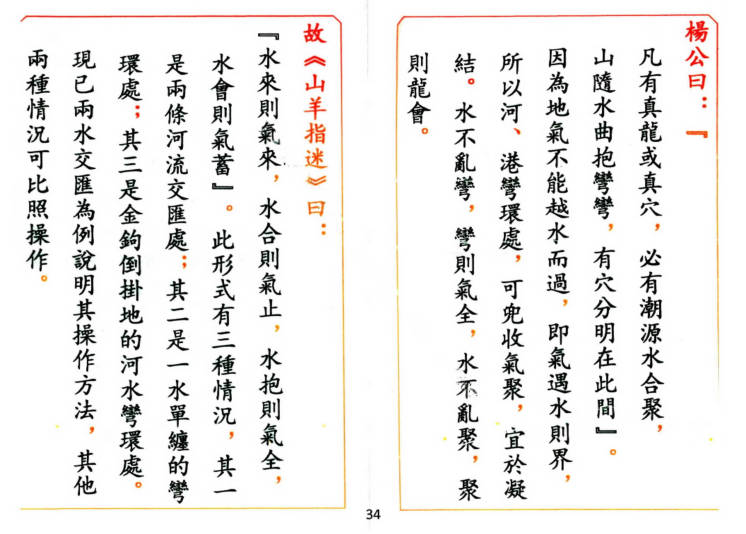 楊公曰：『
凡有真龍或真穴，必有潮源水合聚，
山隨水曲抱彎彎，有穴分明在此間』。
因為地氣不能越水而過，即氣遇水則界，
所以河、港彎環處，可兜收氣聚，宜於凝
結。水不亂彎，彎則氣全，水不亂聚，聚
則龍會。
故《山羊指迷》曰：
『水來則氣來，水合則氣止，水抱則氣全，
水會則氣蓄』。此形式有三種情況，其一
是兩條河流交匯處；其二是一水單纏的彎
環處；其三是金鉤倒掛地的河水彎環處。
現已兩水交匯為例說明其操作方法，其他
兩種情況可比照操作。
34